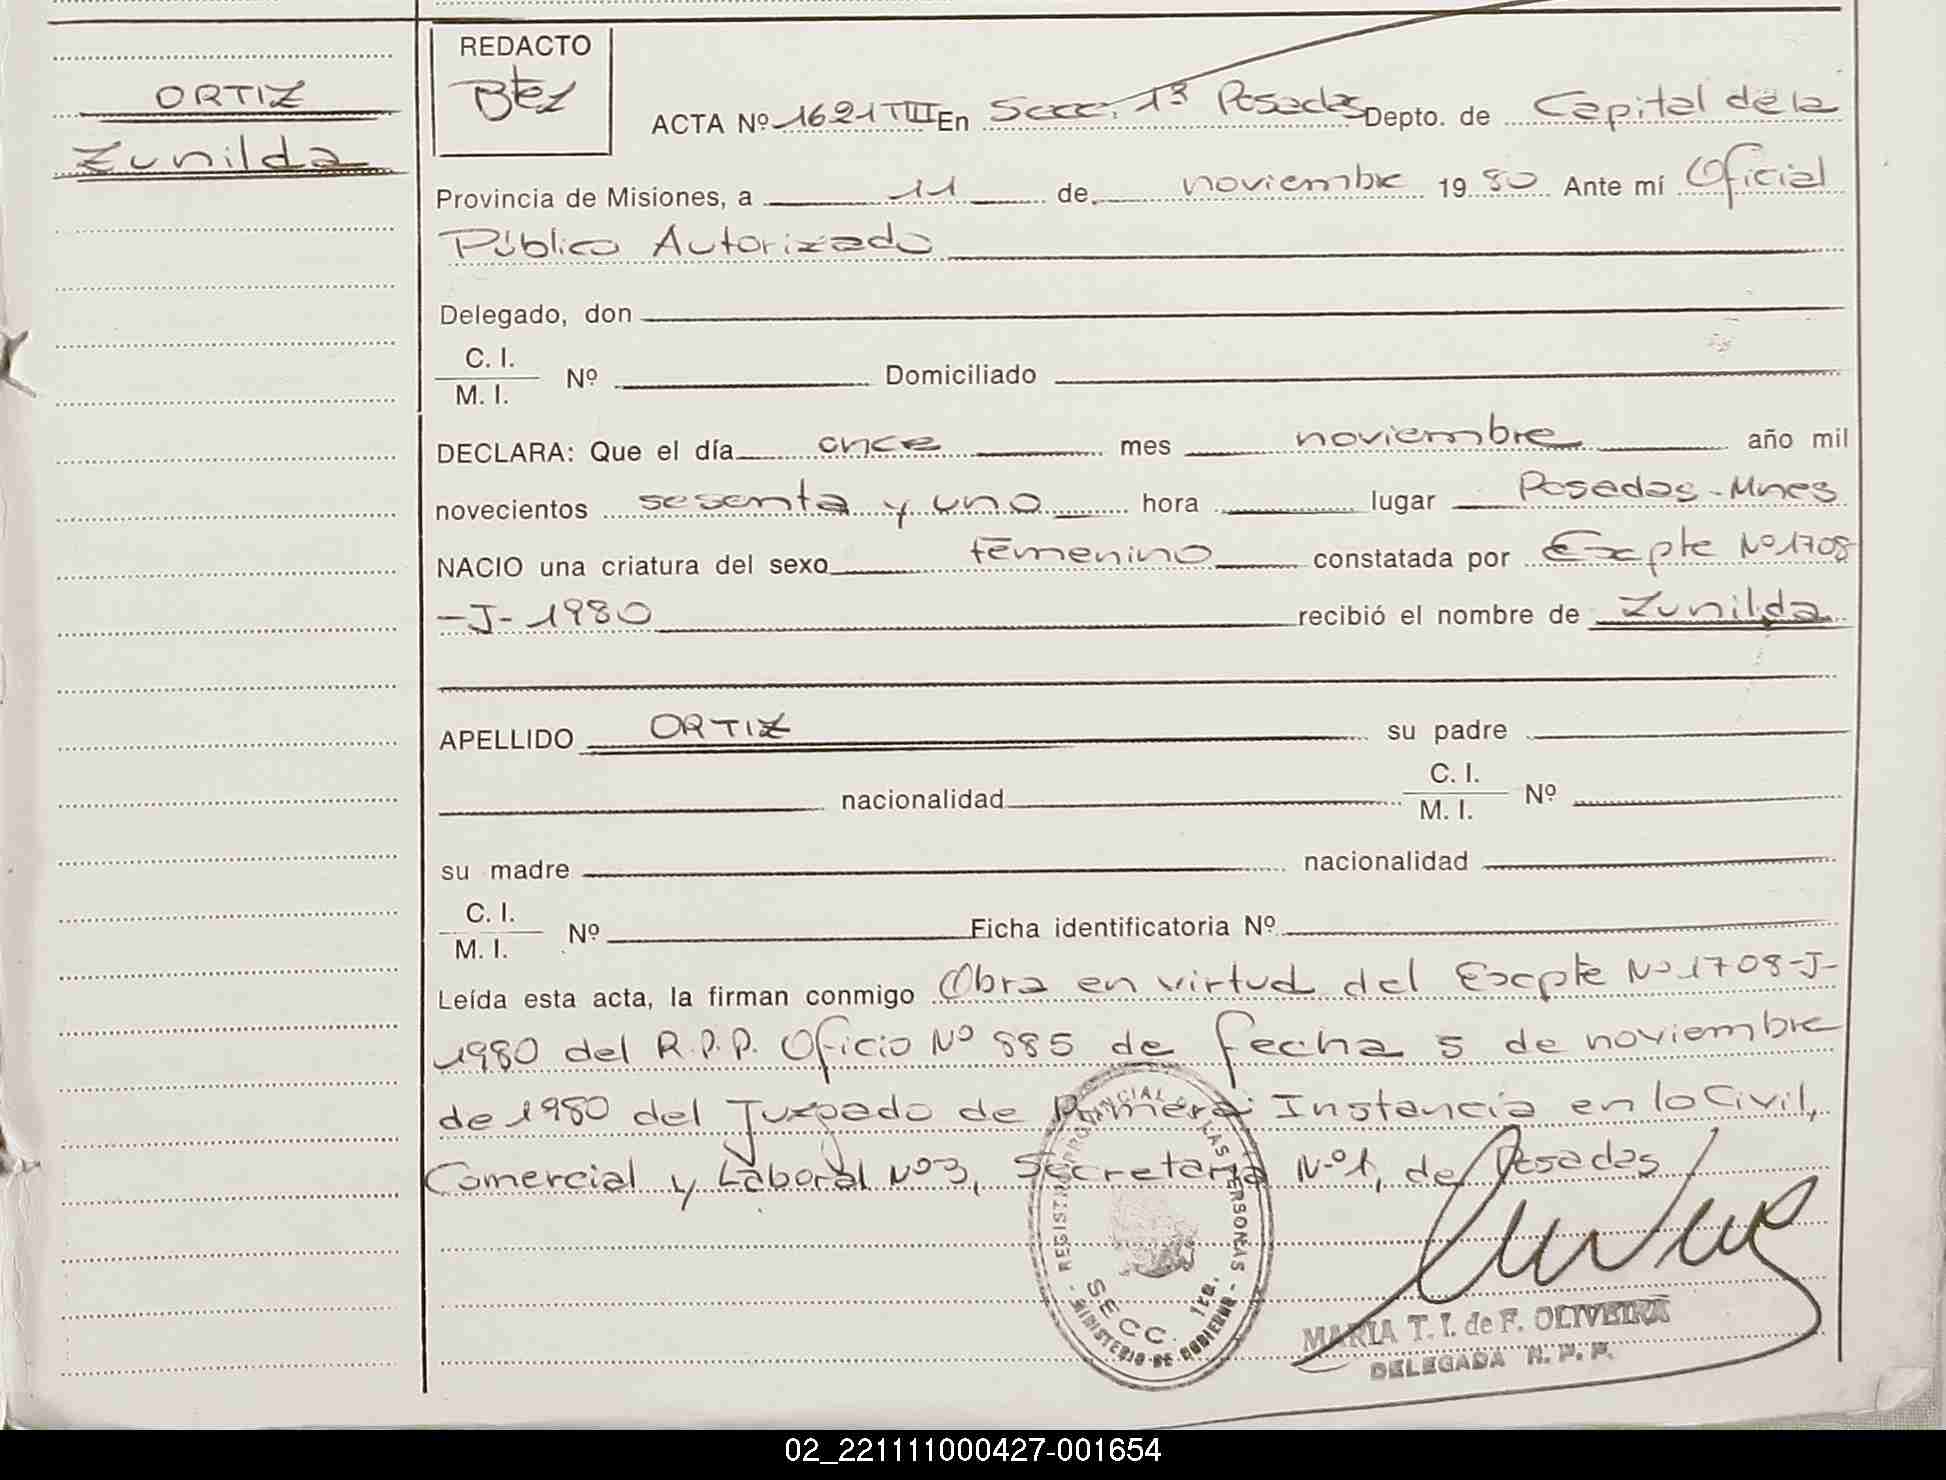 ORTIZ
Zunilda
REDACTO
Btez
ACTA Nº 1621 TIII En Secc. 1ª Posadas Depto. de Capital de la
Provincia de Misiones, a 11 de noviembre 1980 Ante mí Oficial
Público Autorizado
Delegado, don
C. I.
M. I. Nº Domiciliado
DECLARA: Que el día once mes noviembre año mil
novecientos sesenta y uno hora lugar Posadas-Mnes
NACIO una criatura del sexo femenino constatada por Excpte Nº 1708
-J-1980 recibió el nombre de Zunilda
APELLIDO ORTIZ su padre
nacionalidad C. I.
M. I. Nº
su madre nacionalidad
C. I.
M. I. Nº Ficha identificatoria Nº
Leída esta acta, la firman conmigo Obra en virtud del Excpte Nº 1708-J-
1980 del R.P.P. Oficio Nº 885 de fecha 5 de noviembre
de 1980 del Juzgado de Primera Instancia en lo Civil,
Comercial y Laboral Nº 3, Secretaria Nº 1, de Posadas
REGISTRO PROVINCIAL DE LAS PERSONAS
SECC. 1ra.
MINISTERIO DE GOBIERNO
MARIA T. I. de F. OLIVEIRA
DELEGADA R. P. P.
02_221111000427-001654